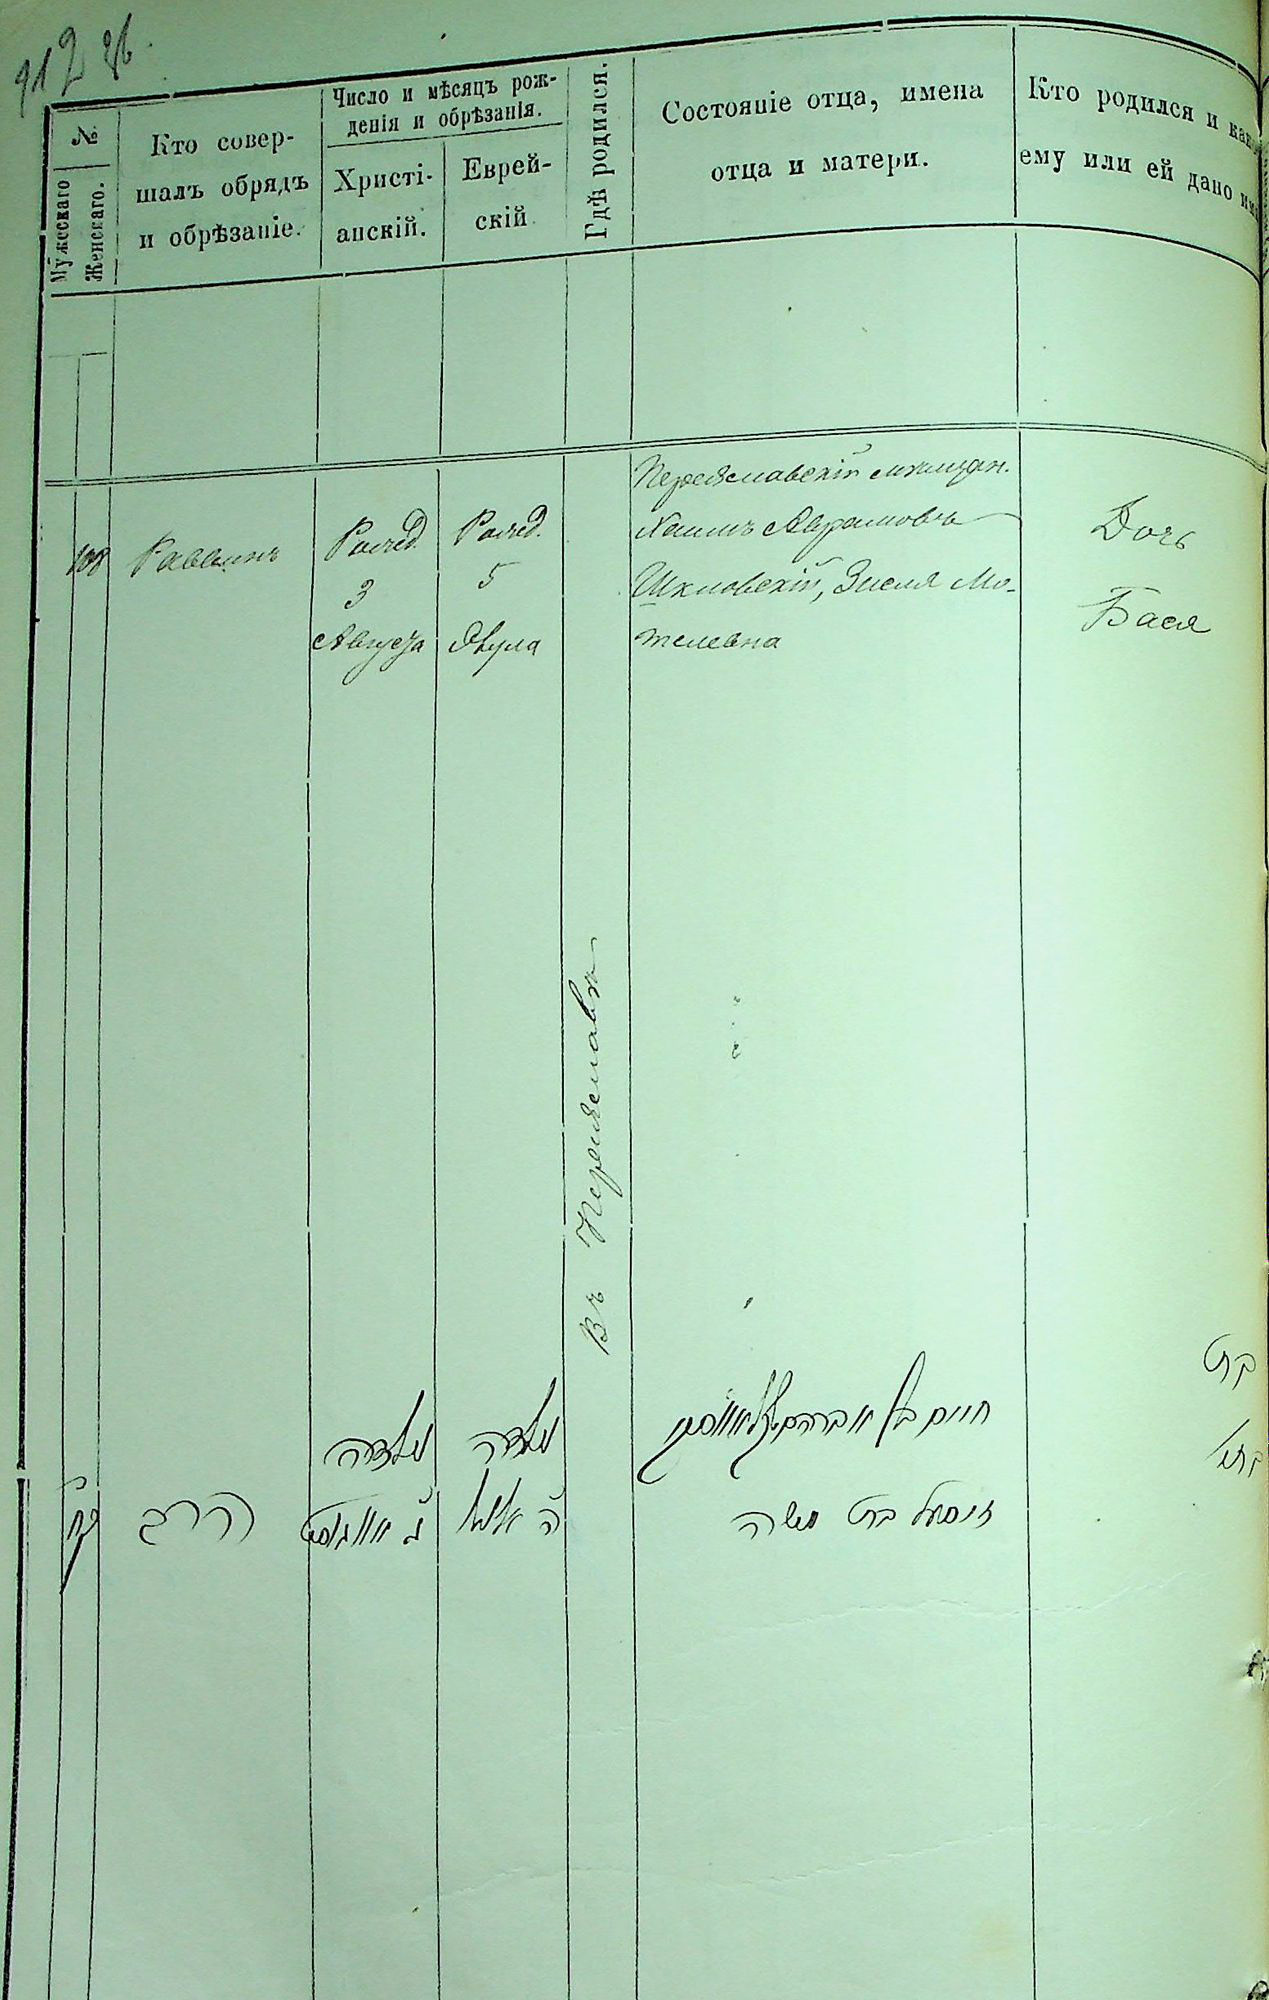 912 об.
№
Мужескаго
Женскаго.
Кто совер-
шалъ обрядъ
и обрѣзаніе.
Число и мѣсяцъ рож-
денія и обрѣзанія.
Христі-
анскій.
Еврей-
скій
Гдѣ родился.
Состояніе отца, имена
отца и матери.
Кто родился и как
ему или ей дано им
108
Раввинъ
Рожд.
3
Августа
Рожд.
5
Въ Переяславѣ
Переяславскій мѣщан.
Хаимъ Аврамовъ
Шкловскій, Зисля Мо-
шелевна
Дочь
Бася
קח
הרב
נולדה
ג אוגוסט
נולדה
ה אלול
חיים בן אברהם שקלאווסקי
זיסל בת משה
בת